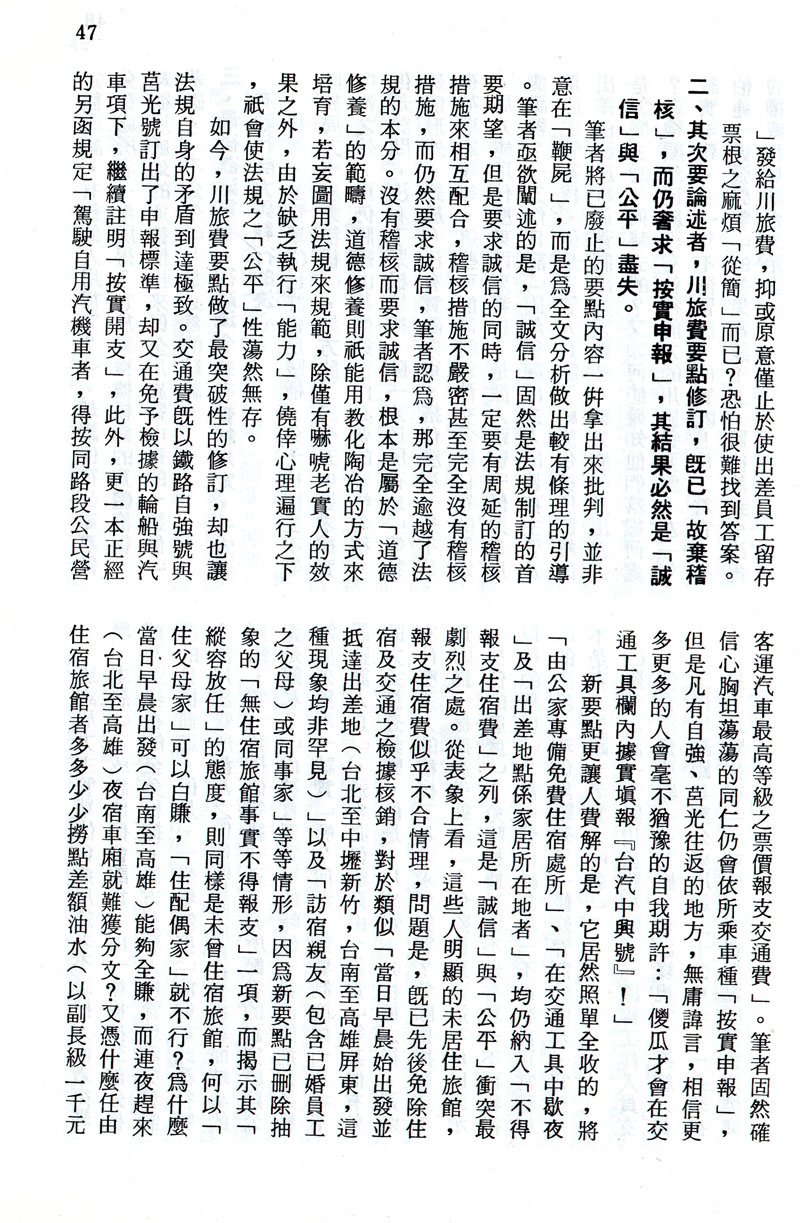 47
」發給川旅費，抑或原意僅止於使出差員工留存
票根之麻煩「從簡」而已？恐怕很難找到答案。
二、其次要論述者，川旅費要點修訂，旣已「故棄稽
核」，而仍奢求「按實申報」，其結果必然是「誠
信」與「公平」盡失。
筆者將已廢止的要點內容一倂拿出來批判，並非
意在「鞭屍」，而是爲全文分析做出較有條理的引導
。筆者亟欲闡述的是，「誠信」固然是法規制訂的首
要期望，但是要求誠信的同時，一定要有周延的稽核
措施來相互配合，稽核措施不嚴密甚至完全沒有稽核
措施，而仍然要求誠信，筆者認爲，那完全逾越了法
規的本分。沒有稽核而要求誠信，根本是屬於「道德
修養」的範疇，道德修養則祇能用敎化陶冶的方式來
培育，若妄圖用法規來規範，除僅有嚇唬老實人的效
果之外，由於缺乏執行「能力」，僥倖心理遍行之下
，祇會使法規之「公平」性蕩然無存。
如今，川旅費要點做了最突破性的修訂，却也讓
法規自身的矛盾到達極致。交通費旣以鐵路自強號與
莒光號訂出了申報標準，却又在免予檢據的輪船與汽
車項下，繼續註明「按實開支」，此外，更一本正經
的另函規定「駕駛自用汽機車者，得按同路段公民營
客運汽車最高等級之票價報支交通費」。筆者固然確
信心胸坦蕩蕩的同仁仍會依所乘車種「按實申報」，
但是凡有自強、莒光往返的地方，無庸諱言，相信更
多更多的人會毫不猶豫的自我期許：「傻瓜才會在交
通工具欄內據實塡報『台汽中興號』！」
新要點更讓人費解的是，它居然照單全收的，將
「由公家專備免費住宿處所」、「在交通工具中歇夜
」及「出差地點係家居所在地者」，均仍納入「不得
報支住宿費」之列，這是「誠信」與「公平」衝突最
劇烈之處。從表象上看，這些人明顯的未居住旅館，
報支住宿費似乎不合情理，問題是，旣已先後免除住
宿及交通之檢據核銷，對於類似「當日早晨始出發並
抵達出差地（台北至中壢新竹，台南至高雄屏東，這
種現象均非罕見）」以及「訪宿親友（包含已婚員工
之父母）或同事家」等等情形，因爲新要點已刪除抽
象的「無住宿旅館事實不得報支」一項，而揭示其「
縱容放任」的態度，則同樣是未曾住宿旅館，何以「
住父母家」可以白賺，「住配偶家」就不行？爲什麼
當日早晨出發（台南至高雄）能夠全賺，而連夜趕來
（台北至高雄）夜宿車廂就難獲分文？又憑什麼任由
住宿旅館者多多少少撈點差額油水（以副長級一千元